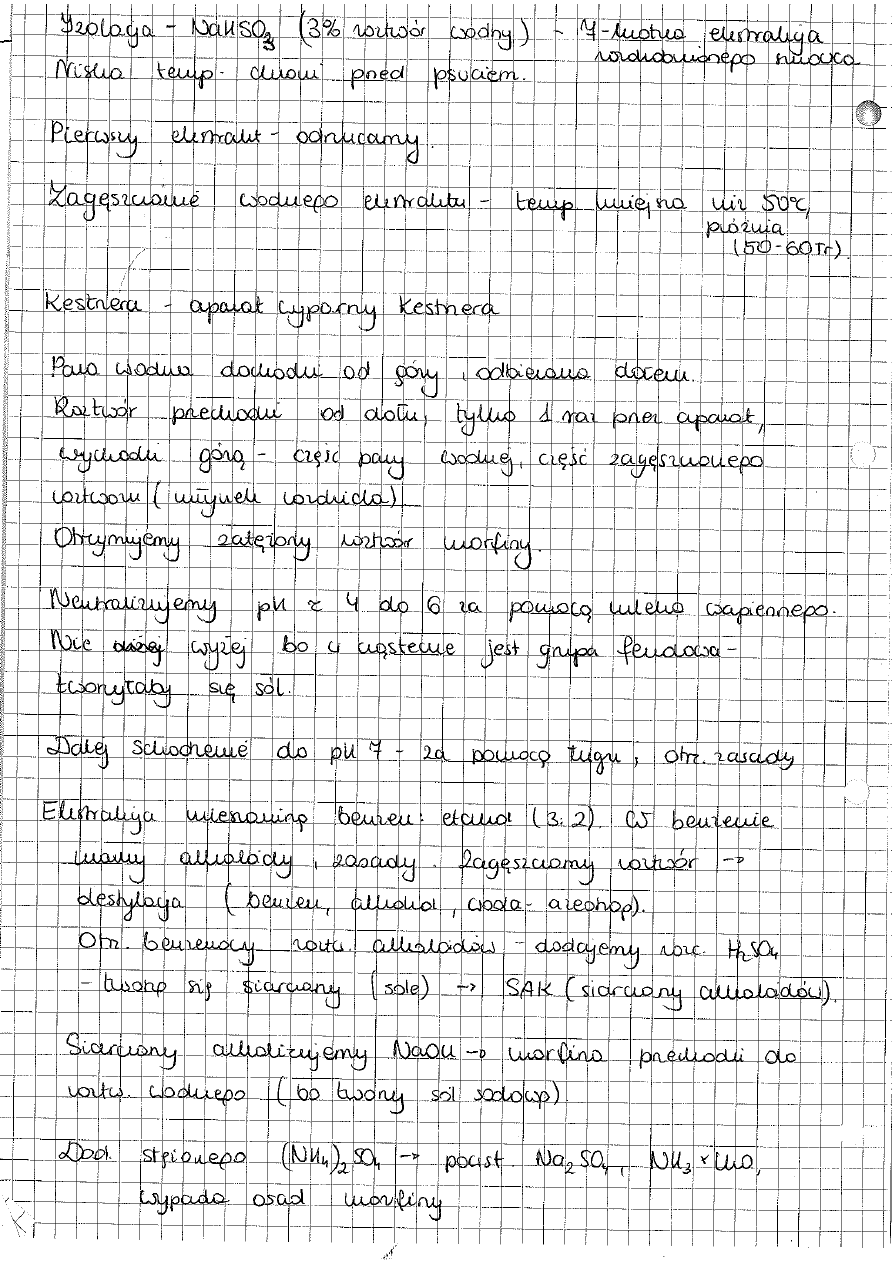 Izolacja - NaHSO3 (3% roztwór wodny) - 7-krotna ekstrakcja
rozdrobnionego
Niska temp. chroni przed psuciem.
Pierwszy ekstrakt - odrzucamy.
Zagęszczanie wodnego ekstraktu - temp mniejsza niż 50°C,
próżnia
(50-60Tr)
Kestnera - aparat wyparny Kestnera
Para wodna dochodzi od góry, odbierana dołem.
Roztwór przechodzi od dołu, tylko 1 raz przez aparat,
wychodzi górą - część pary wodnej, część zagęszczonego
roztworu (młynek rozdziela)
Otrzymujemy zatężony roztwór morfiny.
Neutralizujemy pH z 4 do 6 za pomocą mleka wapiennego.
Nie wyżej bo w cząsteczce jest grupa fenolowa -
tworzyłaby się sól.
Dalej schodzenie do pH 7 - za pomocą ługu, otrz. zasady
Ekstrakcja mieszaniną benzen: etanol (3:2) W benzenie
mamy alkaloidy, zasady. Zagęszczamy roztwór →
destylacja (benzen, alkohol, woda - azeotrop).
Otrz. benzenowy roztw. alkaloidów - dodajemy rozc. H2SO4
- tworzą się siarczany (sole) → SAK (siarczany alkaloidów).
Siarczany alkalizujemy NaOH → morfina przechodzi do
roztw. wodnego (bo tworzy sól sodową)
Dod. stężonego (NH4)2SO4 → powst. Na2SO4, NH3 ×
wypada osad morfiny